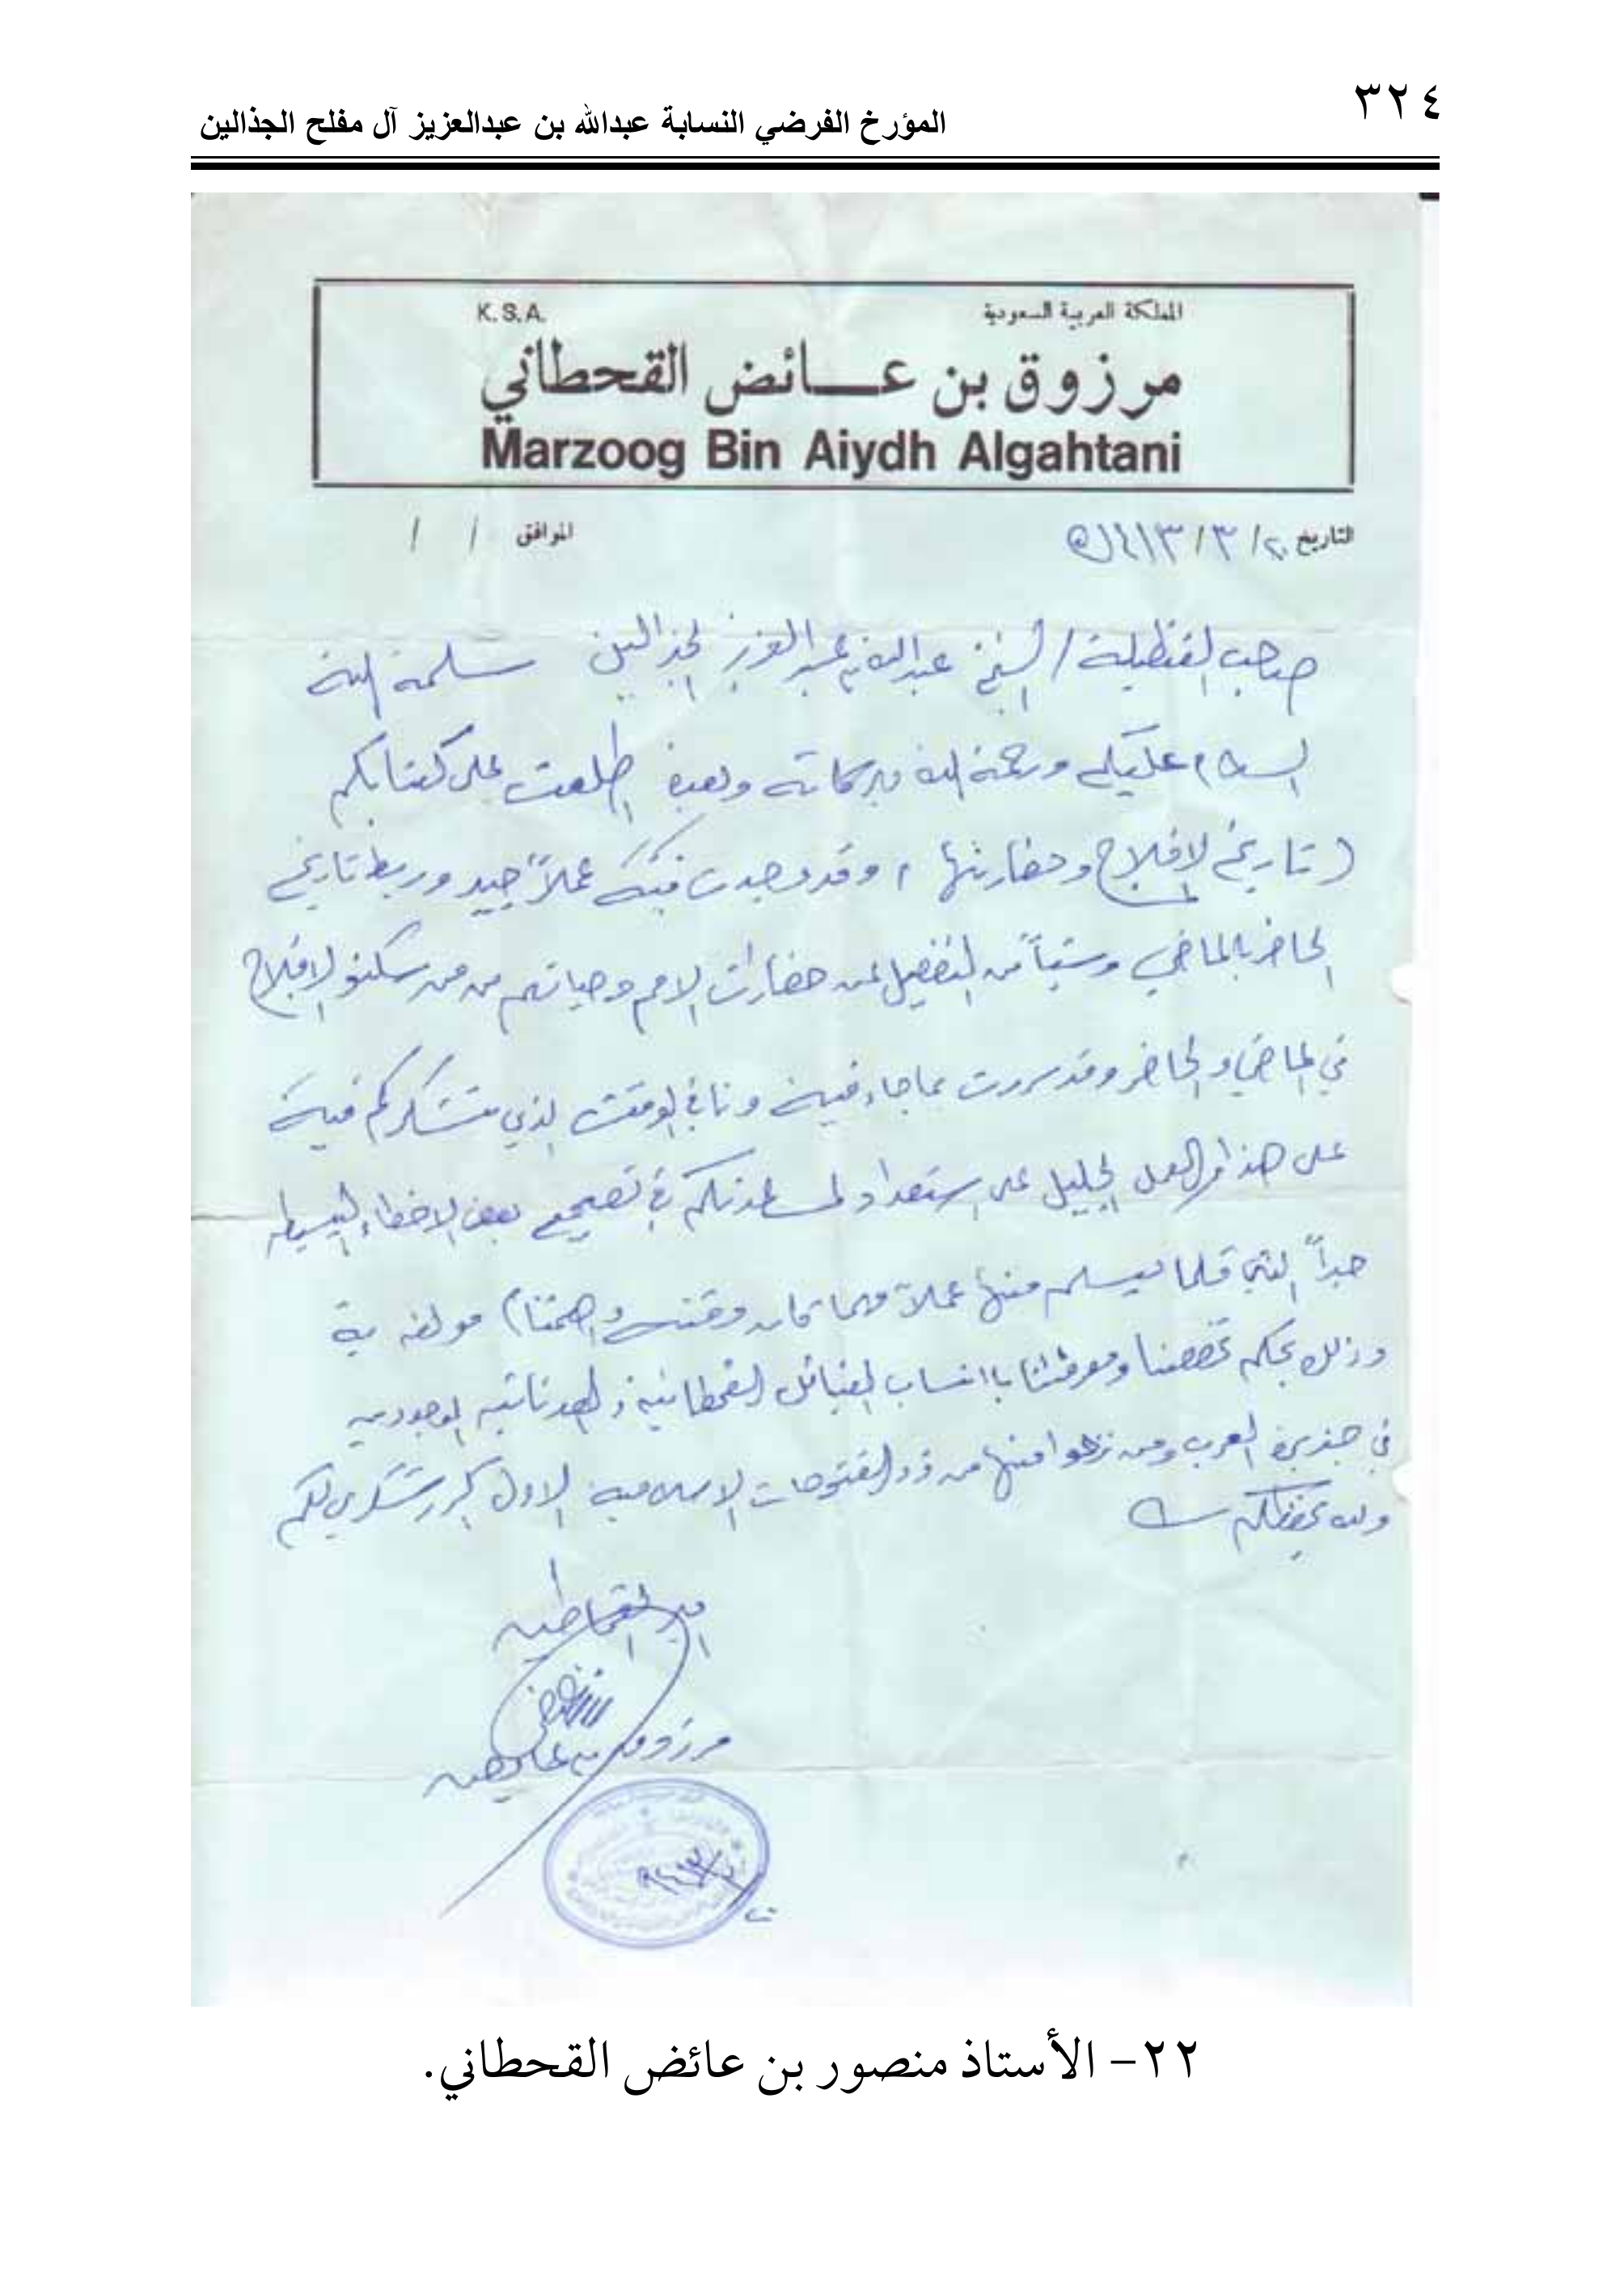 ٣٢٤
المؤرخ الفرضي النسابة عبدالله بن عبدالعزيز آل مفلح الجذالين
المملكة العربية السعودية
K.S.A.
مرزوق بن عائض القحطاني
Marzoog Bin Aiydh Algahtani
التاريخ ٢٠/٣/١٤١٣هـ الموافق / /
صاحب الفظيلة / الشيخ عبدالله بن عبدالعزيز الجذالين سلمة الله
السلام عليكم ورحمة الله وبركاته وبعد اطلعت على كتابكم
(تاريخ الافلاج وحضارتها) وقد وجدت فيه عملاً جيد وربط تاريخ
الحاضر بالماضي وشيئاً من التفصيل عن حضارات الامم وحياتهم من من سكنو الافلاج
في الماضي والحاضر وقد سررت بما جاء فيه وانا في الوقت الذي نشكركم فيه
على هذا العمل الجليل على استعداد لمساعدتكم في تصحيح بعض الاخطاء البسيطه
جداً التي قلما يسلم منها عملاً مهما كان
وذلك بحكم تخصصنا ومعرفتنا با انساب القبائل القحطانية والعدنانيه الموجوديه
في جزيرة العرب ومن نزحوا منها من الفتوحات الاسلاميه الاول اكرر شكري لكم
والله يحفظكم
مرزوق بن عايض
٢٢- الأستاذ منصور بن عائض القحطاني.